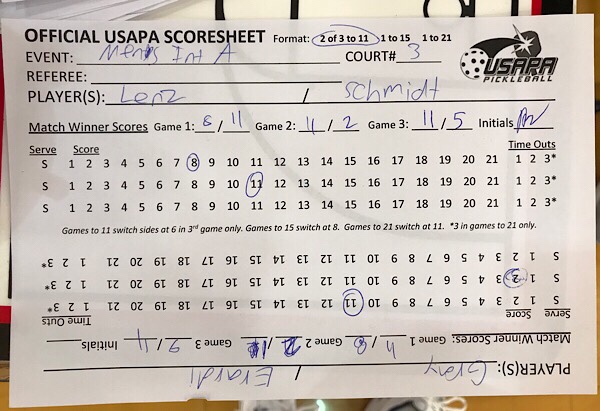 OFFICIAL USAPA SCORESHEET Format: 2 of 3 to 11 1 to 15 1 to 21
EVENT: Mens Int A COURT# 3
REFEREE:
USAPA
PICKLEBALL
PLAYER(S): Lenz / Schmidt
Match Winner Scores Game 1: 8 / 11 Game 2: 11 / 2 Game 3: 11 / 5 Initials
Serve Score Time Outs
S 1 2 3 4 5 6 7 8 9 10 11 12 13 14 15 16 17 18 19 20 21 1 2 3*
S 1 2 3 4 5 6 7 8 9 10 11 12 13 14 15 16 17 18 19 20 21 1 2 3*
S 1 2 3 4 5 6 7 8 9 10 11 12 13 14 15 16 17 18 19 20 21 1 2 3*
Games to 11 switch sides at 6 in 3rd game only. Games to 15 switch at 8. Games to 21 switch at 11. *3 in games to 21 only.
PLAYER(S): Gray / Erardi
Match Winner Scores: Game 1 / 8 Game 2 / Game 3 Initials
Serve Score Time Outs
S 1 2 3 4 5 6 7 8 9 10 11 12 13 14 15 16 17 18 19 20 21 1 2 3*
S 1 2 3 4 5 6 7 8 9 10 11 12 13 14 15 16 17 18 19 20 21 1 2 3*
S 1 2 3 4 5 6 7 8 9 10 11 12 13 14 15 16 17 18 19 20 21 1 2 3*